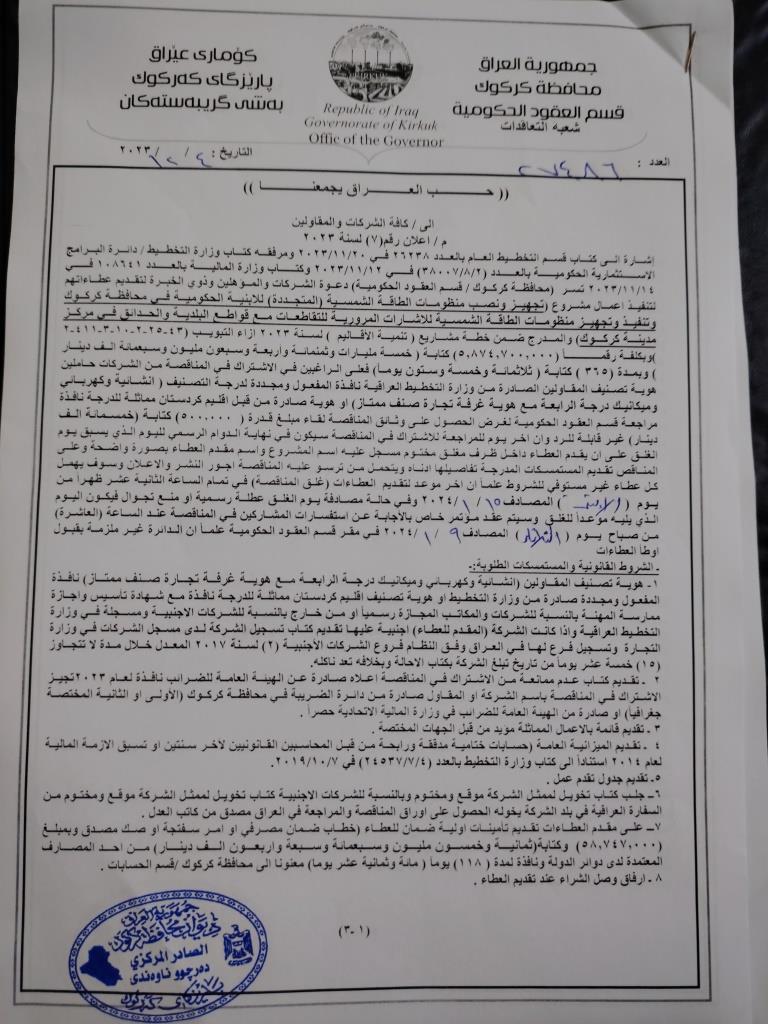 جمهورية العراق
محافظة كركوك
قسم العقود الحكومية
شعبه التعاقدات
Republic of Iraq
Governorate of Kirkuk
Office of the Governor
كۆماری عێراق
پارێزگای کەرکوک
بەشی گرێبەستەکان
العدد : ٢٧٤٨٦
التاريخ : ٤ / ١٢ / ٢٠٢٣
(( حب العراق يجمعنا ))
الى / كافة الشركات والمقاولين
م / اعلان رقم (٧) لسنة ٢٠٢٣
إشارة الى كتاب قسم التخطيط العام بالعدد ٢٦٢٣٨ في ٢٠٢٣/١١/٢٠ ومرفقه كتاب وزارة التخطيط / دائرة البرامج
الاستثمارية الحكومية بالعدد (٣٨٠٠٧/٨/٢) في ٢٠٢٣/١١/١٢ وكتاب وزارة المالية بالعدد ١٠٨٦٤١ في
٢٠٢٣/١١/١٤ تسر (محافظة كركوك / قسم العقود الحكومية) دعوة الشركات والمؤهلين وذوي الخبرة لتقديم عطاءاتهم
لتنفيذ اعمال مشروع (تجهيز ونصب منظومات الطاقة الشمسية (المتجددة) للابنية الحكومية في محافظة كركوك
وتنفيذ وتجهيز منظومات الطاقة الشمسية للاشارات المرورية للتقاطعات مع قواطع البلدية والحدائق في مركز
مدينة كركوك) والمدرج ضمن خطة مشاريع ( تنمية الأقاليم ) لسنة ٢٠٢٣ ازاء التبويب (٤٣-٢٥-٢-١٠-٣-٤١١-٢
)وبكلفة رقماً (٥,٨٧٤,٧٠٠,٠٠٠) كتابة ( خمسة مليارات وثمنمائة وأربعة وسبعون مليون وسبعمائة الف دينار
) وبمدة (٣٦٥) كتابة ( ثلاثمائة وخمسة وستون يوما) فعلى الراغبين في الاشتراك في المناقصة من الشركات حاملين
هوية تصنيف المقاولين الصادرة من وزارة التخطيط العراقية نافذة المفعول ومجددة لدرجة التصنيف ( انشائية وكهربائي
وميكانيك درجة الرابعة مع هوية غرفة تجارة صنف ممتاز) او هوية صادرة من قبل اقليم كردستان مماثلة للدرجة نافذة
مراجعة قسم العقود الحكومية لغرض الحصول على وثائق المناقصة لقاء مبلغ قدرة ( ٥٠٠,٠٠٠) كتابة ( خمسمائة الف
دينار) غير قابلة للرد وان اخر يوم للمراجعة للاشتراك في المناقصة سيكون في نهاية الدوام الرسمي لليوم الذي يسبق يوم
الغلق على ان يقدم العطاء داخل ظرف مغلق مختوم مسجل عليه اسم المشروع واسم مقدم العطاء بصورة واضحة وعلى
المناقص تقديم المستمسكات المدرجة تفاصيلها ادناه ويتحمل من ترسو عليه المناقصة اجور النشر والاعلان وسوف يهمل
كل عطاء غير مستوفي للشروط علماً ان اخر موعد لتقديم العطاءات (غلق المناقصة) في تمام الساعة الثانية عشر ظهراً من
يوم ( الاثنين ) المصادف ١٥ / ١ / ٢٠٢٤ وفي حالة مصادفة يوم الغلق عطلة رسمية او منع تجوال فيكون اليوم
الذي يليه موعداً للغلق وسيتم عقد مؤتمر خاص بالأجابة عن استفسارات المشاركين في المناقصة عند الساعة (العاشرة)
من صباح يوم ( الثلاثاء ) المصادف ٩ / ١ / ٢٠٢٤ في مقر قسم العقود الحكومية علماً ان الدائرة غير ملزمة بقبول
اوطأ العطاءات
- الشروط القانونية والمستمسكات الطلوبة:-
١- هوية تصنيف المقاولين (انشائية وكهربائي وميكانيك درجة الرابعة مع هوية غرفة تجارة صنف ممتاز) نافذة
المفعول ومجددة صادرة من وزارة التخطيط او هوية تصنيف اقليم كردستان مماثلة للدرجة نافذة مع شهادة تاسيس واجازة
ممارسة المهنة بالنسبة للشركات والمكاتب المجازة رسمياً او من خارج بالنسبة للشركات الاجنبية ومسجلة في وزارة
التخطيط العراقية واذا كانت الشركة (المقدم للعطاء) اجنبية عليها تقديم كتاب تسجيل الشركة لدى مسجل الشركات في وزارة
التجارة وتسجيل فرع لها في العراق وفق النظام فروع الشركات الأجنبية (٢) لسنة ٢٠١٧ المعدل خلال مدة لا تتجاوز
(١٥) خمسة عشر يوماً من تاريخ تبلغ الشركة بكتاب الاحالة وبخلافه تعد ناكله.
٢ - تقديم كتاب عدم ممانعة من الاشتراك في المناقصة اعلاه صادرة عن الهيئة العامة للضرائب نافذة لعام ٢٠٢٣تجيز
الاشتراك في المناقصة باسم الشركة او المقاول صادرة من دائرة الضريبة في محافظة كركوك (الأولى او الثانية المختصة
جغرافياً) او صادرة من الهيئة العامة للضرائب في وزارة المالية الاتحادية حصراً .
٣ - تقديم قائمة بالاعمال المماثلة مؤيد من قبل الجهات المختصة .
٤ - تقديم الميزانية العامة (حسابات ختامية مدققة ورابحة من قبل المحاسبين القانونيين لاخر سنتين او تسبق الازمة المالية
لعام ٢٠١٤ استناداً الى كتاب وزارة التخطيط بالعدد (٢٤٥٣٧/٧/٤) في ٢٠١٩/١٠/٧.
٥- تقديم جدول تقدم عمل .
٦- جلب كتاب تخويل لممثل الشركة موقع ومختوم وبالنسبة للشركات الاجنبية كتاب تخويل لممثل الشركة موقع ومختوم من
السفارة العراقية في بلد الشركة يخوله الحصول على اوراق المناقصة والمراجعة في العراق مصدق من كاتب العدل .
٧- على مقدم العطاءات تقديم تأمينات اولية ضمان للعطاء (خطاب ضمان مصرفي او امر سفتجة او صك مصدق وبمبلغ
(٥٨,٧٤٧,٠٠٠) وكتابة(ثمانية وخمسون مليون وسبعمائة وسبعة واربعون الف دينار) من احد المصارف
المعتمدة لدى دوائر الدولة ونافذة لمدة (١١٨) يوماً ( مائة وثمانية عشر يوما) معنونا الى محافظة كركوك /قسم الحسابات .
٨ - ارفاق وصل الشراء عند تقديم العطاء .
(٣-١)
جمهورية العراق
ديوان محافظة كركوك
الصادر المركزي
دەرچوو ناوەندی